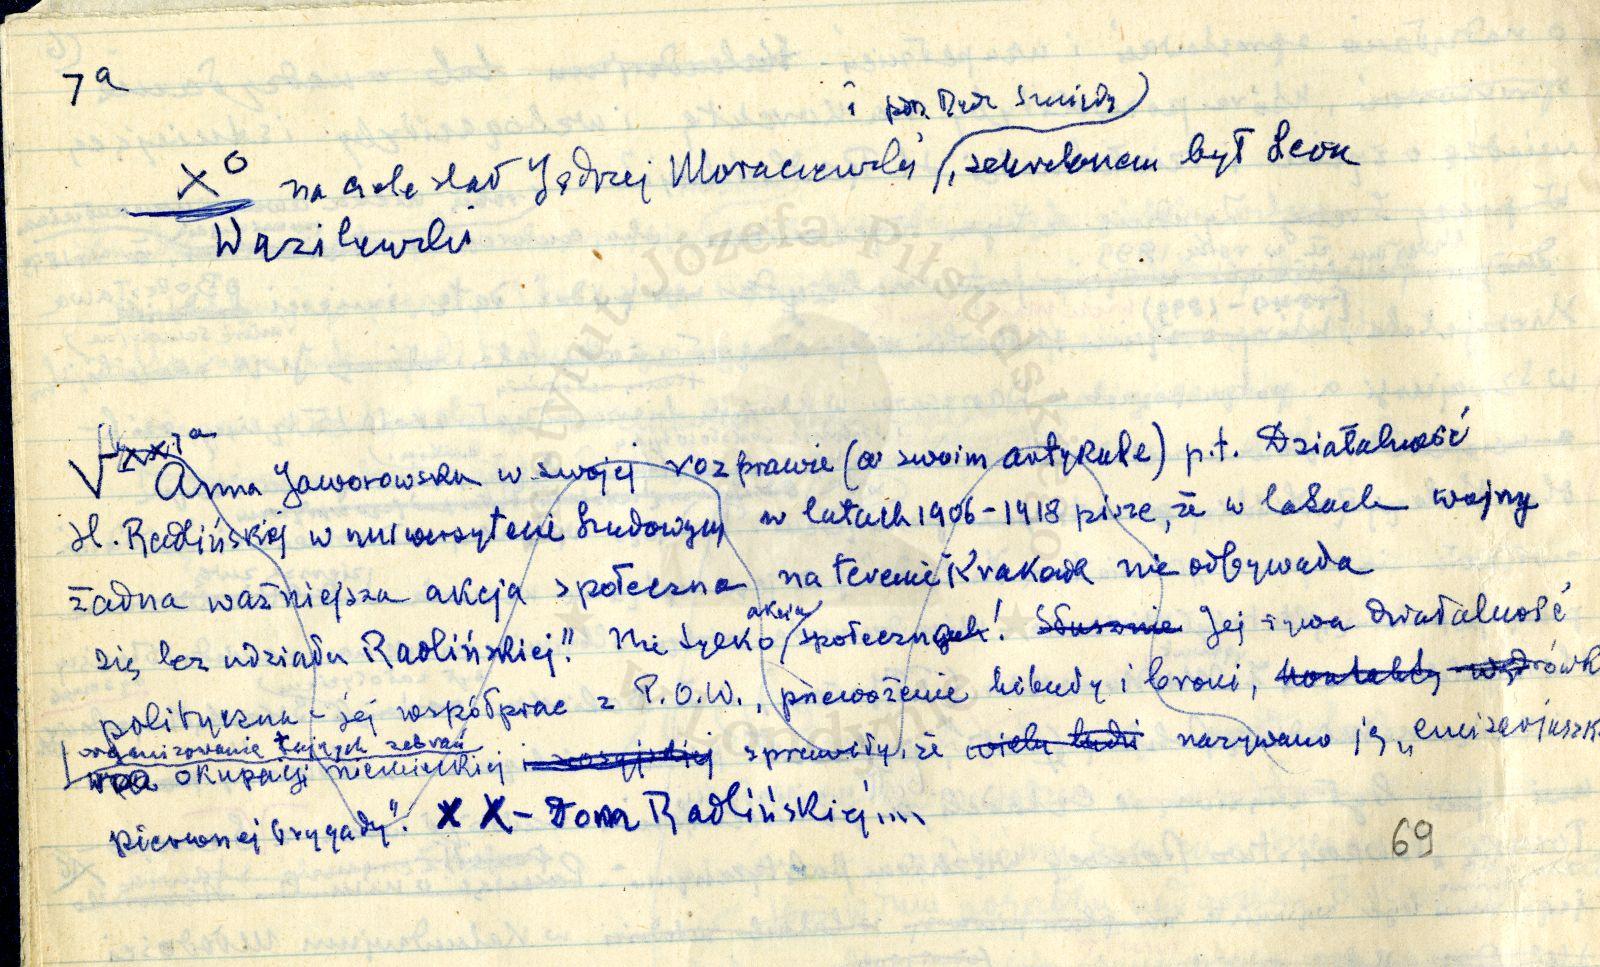 7a
i płk. Rydz Śmigły
x° na czele stał Jędrzej Moraczewski, sekretarzem był Leon
Wasilewski
Anna Jaworowska w swojej rozprawie (w swoim artykule) p.t. Działalność
H. Radlińskiej w uniwersytecie ludowym w latach 1906-1918 pisze, że w latach wojny
żadna ważniejsza akcja społeczna na terenie Krakowa nie odbywała
się bez udziału Radlińskiej." Nie tylko akcja społeczna! Słusznie Jej żywa działalność
polityczna - jej współprac z P.O.W., przewożenie bibuły i broni, kontakty
organizowanie tajnych zebrań
okupacji niemieckiej i rosyjskiej sprawiły, że wielu ludzi nazywano ją „emisarjuszk
pierwszej brygady". X X - Dom Radlińskiej....
69
Instytut Józefa Piłsudskiego
w Londynie